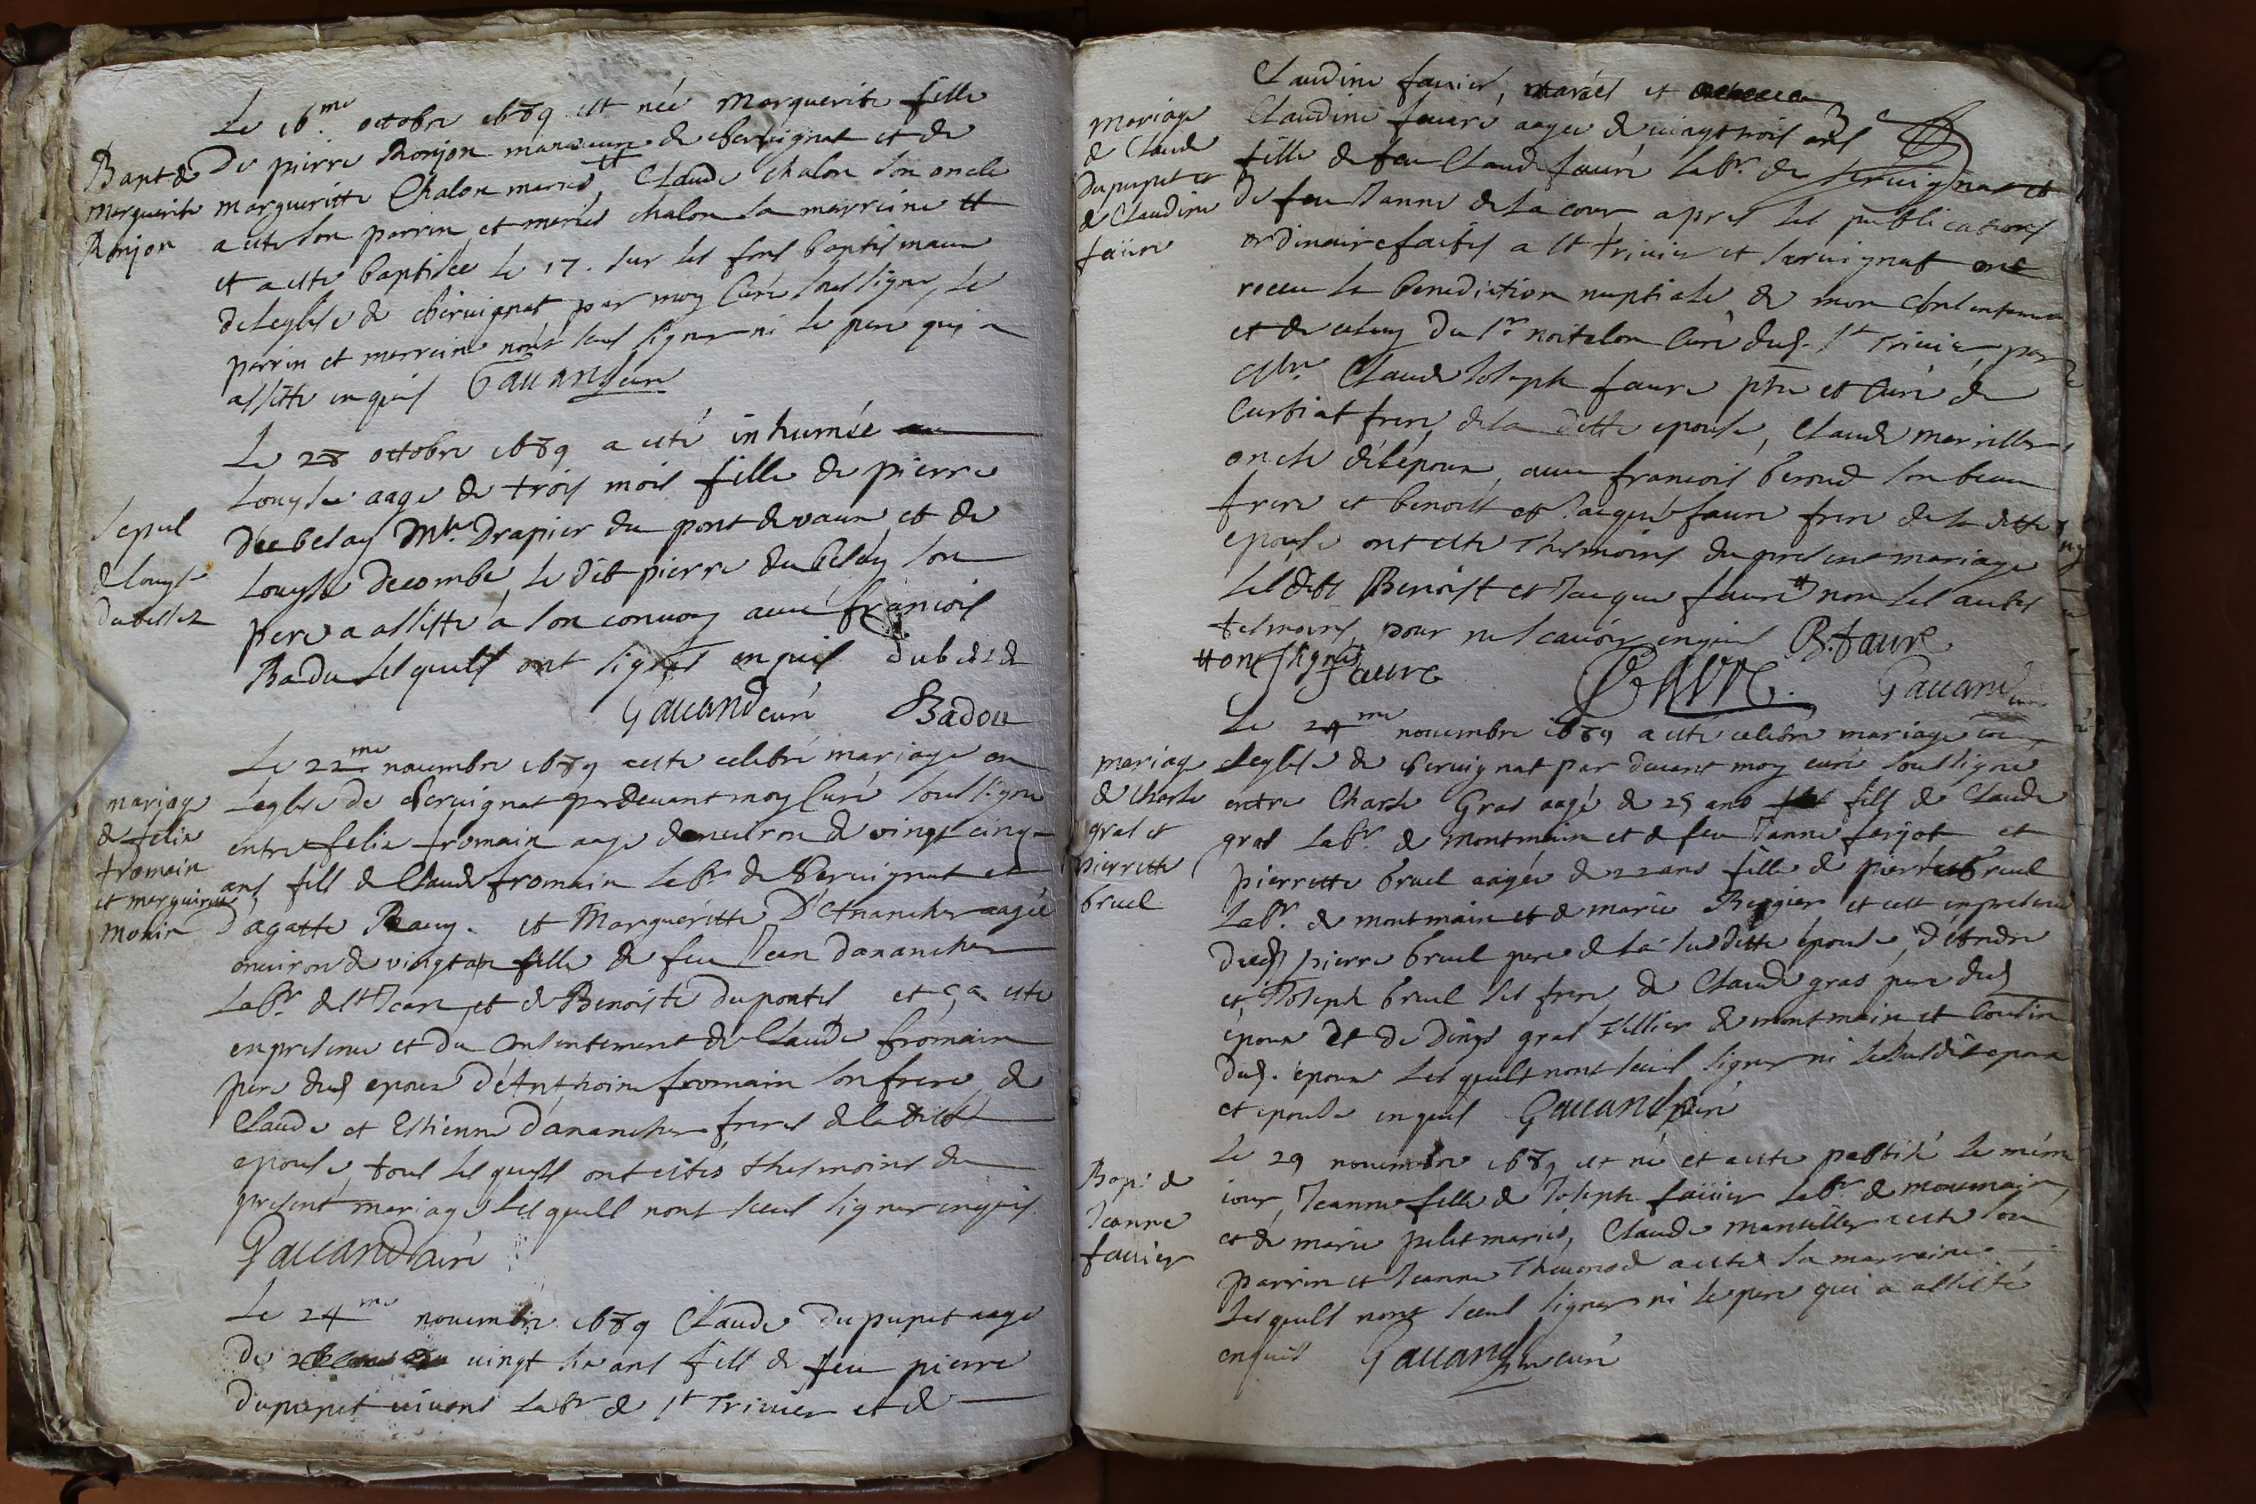 Le 16.me octobre 1689 est née Marguerite fille
Bapt de
Marguerite
Ronjon
De pierre Ronjon de Chervignat et de
Margueritte Chalon mariés, Claude Chalon son oncle
a esté son parrin et chalon sa marreine
et a esté baptisée le 17. sur les fons baptismaux
de leglise de Chervignat par moy Curé soussigné, le
parrin et marreine nont sceu signer ni le pere qui a
assisté enquis Gauand curé
Le 28 octobre 1689 a esté inhumée
Sepul
de Louyse
Louyse aage de trois mois fille de pierre
Dubelay Drapier du pont de vaux et de
Louyse Decombe, Le dit pierre dubelay son
pere a assisté à son convoy avec françois
Badu Lesquels ont signés enquis
Gauand curé Badou
Le 22me novembre 1689 a esté celebré mariage en
mariage
de felix
fromain
et marguirite
Leglise de Chervignat pardevant moy Curé soussigné
entre felix fromain aage denviron de vingt cinq
ans, fils de Claude fromain Labr. de Chervignat et
d'agatte et Marguéritte D'Anancher aagée
environ de vingt ans fille de feu Jean Dananches
Labr. de St Jean et de Benoiste duponts et ça esté
en presence et du consentement de Claude fromain
pere dud epoux d'Anthoine fromain son frere, de
Claude et Estienne D'ananches freres de la ditte
epouse tous lesquels ont estés thesmoins du
present mariage Lesquels nont sceus signer enquis
Gauand curé
Le 24me novembre 1689 Claude Dupupet aage
De vingt six ans fils de feu pierre
Dupupet vivant Labr de St Trivier et de
Claudine favier, mariés et
mariage
de Claude
Dupupet et
de Claudine
faure
Claudine faure aagée de vingt trois ans
fille de feu Claude faure Labr. de Servignat et
De feu Janne de la cour apres les publications
ordinaire faites a St Trivier et servignat ont
receu la benediction nuptiale de mon consentement
et de celuy du Sr. Curé dud. St Trivier, par
Claude Joseph faure ptre et Curé de
Curtiat frere de la ditte epouse, Claude
oncle de l'époux, avec françois beroud son beau
frere et benoist et Jaque faure frere de la ditte
epouse ont esté thesmoins du present mariage
Lesdits Benoist et Jaque faure non les autres
tesmoins, pour ne scavoir enquis B. faure
ont signés faure Gauand curé
Le 24me novembre 1689 a esté celebré mariage en
mariage
de charle
gras et
pierrette
bruel
Leglise de Chervignat par devant moy curé soussigné
entre Charle Gras aagé de 25 ans fils de Claude
gras Labr. de montmain et de feu Janne ferjot et
pierrette bruel aagée de 22 ans fille de pierre bruel
Labr. de montmain et de marie et cest en presence
dud pierre bruel pere de la susditte épouse, d'Andre
et Joseph bruel ses frere, de Claude gras pere dud
époux et de gras de montmain et cousin
dud. époux Lesquels nont sceus signer ni lesusdit epoux
et epouse enquis Gauand curé
Le 29 novembre 1689 est né et a esté babtisé le méme
Bap. de
Jeanne
favier
iour, Jeanne fille de Joseph favier Labr. de monmain,
et de marie mariés, Claude a esté son
parrin et Jeanne a esté sa marreine
Lesquels nont sceus signer ni le pere qui a assisté
enquis Gauand curé